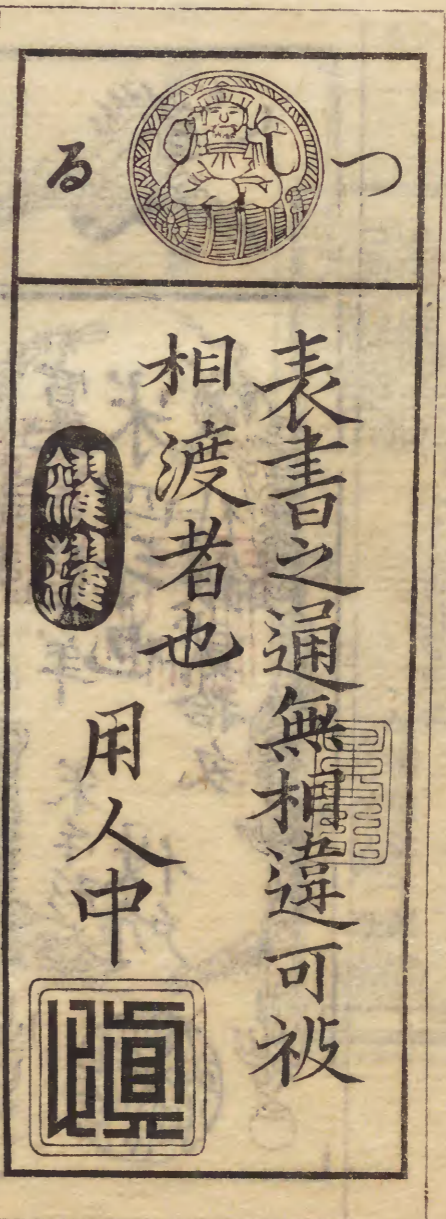 つる
表書之通無相違可被
相渡者也
用人中